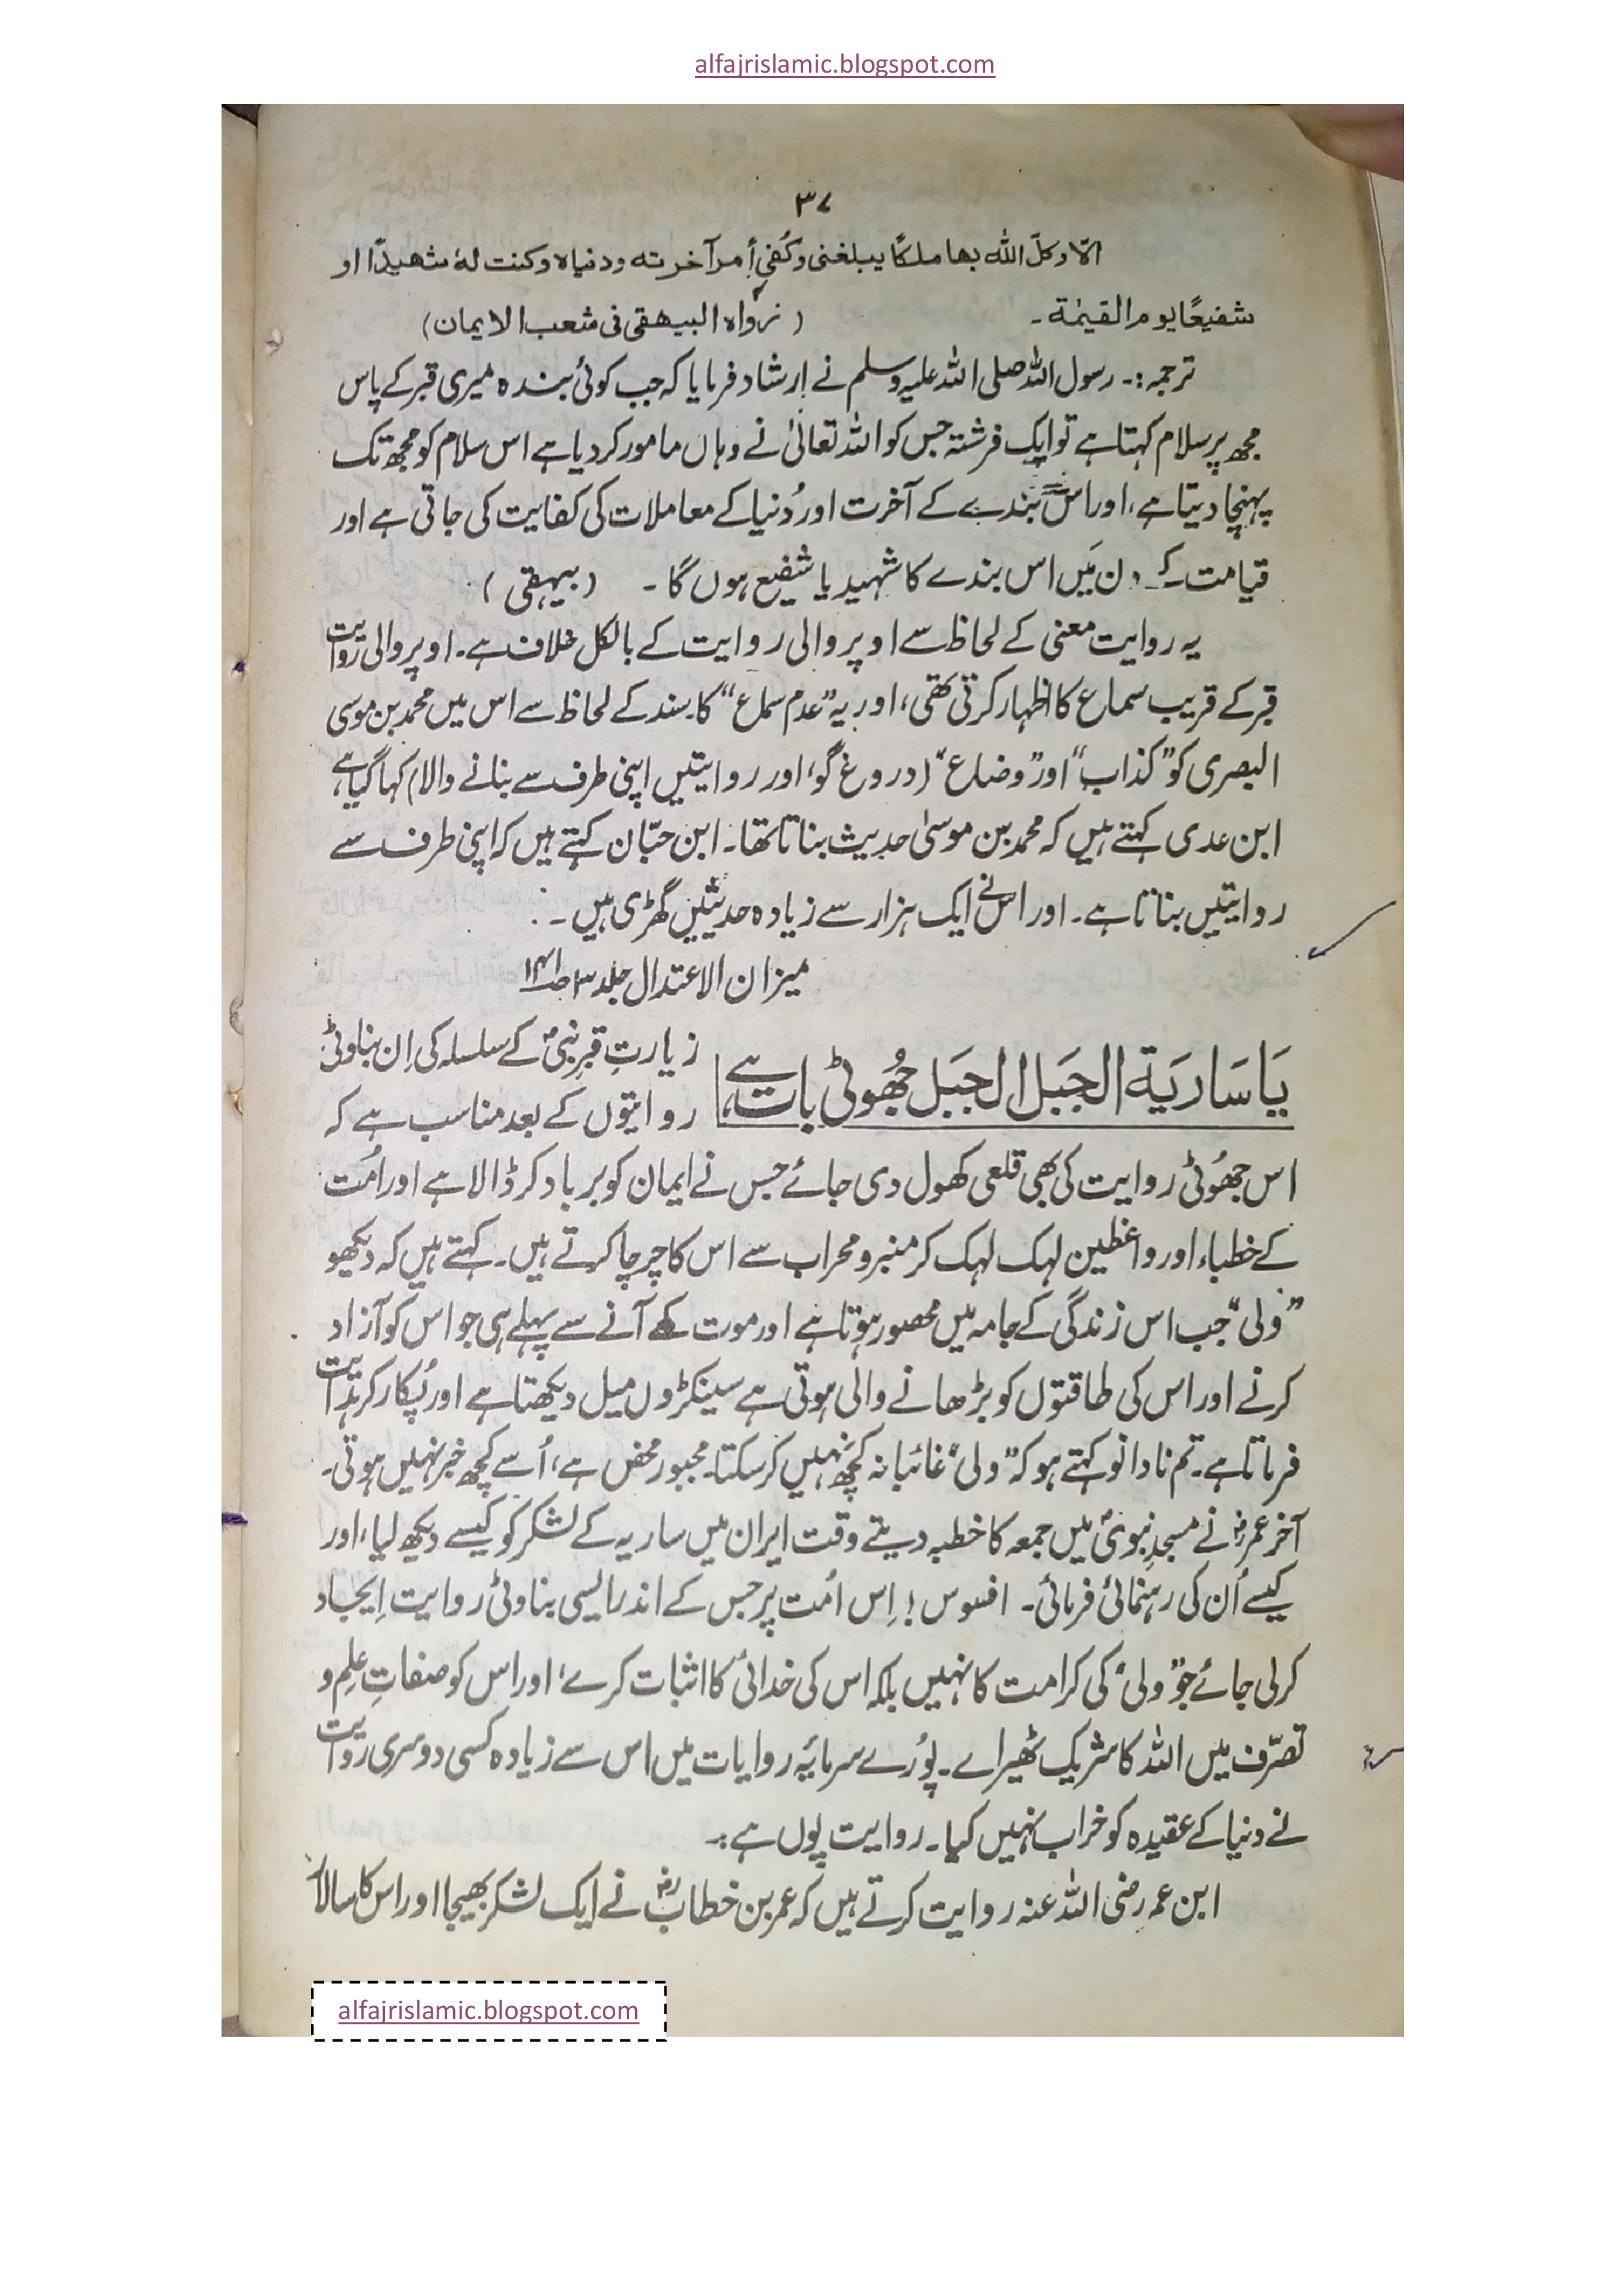 alfajrislamic.blogspot.com
۳۷
الّا وکلّ اللّٰہ بھا ملکًا یبلغنی وکُفی أمر آخرتہ ودنیاہ وکنت لہٗ شھیدًا او
شفیعًا یوم القیٰمۃ۔ (رواہ البیھقی فی شعب الایمان)
ترجمہ:۔ رسول اللہ صلی اللہ علیہ وسلم نے ارشاد فرمایا کہ جب کوئی بندہ میری قبر کے پاس
مجھ پر سلام کہتا ہے تو ایک فرشتہ جس کو اللہ تعالیٰ نے وہاں مامور کر دیا ہے اس سلام کو مجھ تک
پہنچا دیتا ہے، اور اس بندے کے آخرت اور دُنیا کے معاملات کی کفایت کی جاتی ہے اور
قیامت کے دن مَیں اس بندے کا شہید یا شفیع ہوں گا۔ (بیہقی)
یہ روایت معنی کے لحاظ سے اوپر والی روایت کے بالکل خلاف ہے۔ اوپر والی روایت
قبر کے قریب سماع کا اظہار کرتی تھی، اور یہ ”عدم سماع“ کا۔ سند کے لحاظ سے اس میں محمد بن موسی
البصری کو ”کذاب“ اور ”وضاع“ (دروغ گو، اور روایتیں اپنی طرف سے بنانے والا) کہا گیا ہے،
ابن عدی کہتے ہیں کہ محمد بن موسیٰ حدیث بناتا تھا۔ ابن حبّان کہتے ہیں کہ اپنی طرف سے
روایتیں بناتا ہے۔ اور اس نے ایک ہزار سے زیادہ حدیثیں گھڑی ہیں۔
میزان الاعتدال جلد ۳ صـ۱۴۱
یَا سَارِیَۃ الجَبَل الجَبَل جُھوٹی بات ہے، زیارتِ قبرِ نبیؐ کے سلسلہ کی اِن بناوٹی
روایتوں کے بعد مناسب ہے کہ
اس جھُوٹی روایت کی بھی قلعی کھول دی جائے جس نے ایمان کو برباد کر ڈالا ہے اور اُمت
کے خطباء اور واعظین لہک لہک کر منبر و محراب سے اس کا چرچا کرتے ہیں۔ کہتے ہیں کہ دیکھو
”ولی“ جب اس زندگی کے جامہ میں محصور ہوتا ہے اور موت کے آنے سے پہلے ہی جو اس کو آزاد
کرنے اور اس کی طاقتوں کو بڑھانے والی ہوتی ہے سینکڑوں میل دیکھتا ہے اور پُکار کر ہدایت
فرماتا ہے۔ تم نادانو کہتے ہو کہ ”ولی“ غائبانہ کچھ نہیں کر سکتا۔ مجبور محض ہے، اُسے کچھ خبر نہیں ہوتی۔
آخر عمرؓ نے مسجدِ نبویؐ میں جمعہ کا خطبہ دیتے وقت ایران میں ساریہ کے لشکر کو کیسے دیکھ لیا، اور
کیسے اُن کی رہنمائی فرمائی۔ افسوس! اِس اُمت پر جس کے اندر ایسی بناوٹی روایت اِیجاد
کر لی جائے جو ”ولی“ کی کرامت کا نہیں بلکہ اس کی خدائی کا اثبات کرے، اور اس کو صفاتِ علِم و
تصرّف میں اللہ کا شریک ٹھیراے۔ پوُرے سرمایۂ روایات میں اس سے زیادہ کسی دوسری روایت
نے دنیا کے عقیدہ کو خراب نہیں کیا۔ روایت یوں ہے:۔
ابن عمر رضی اللہ عنہ روایت کرتے ہیں کہ عمر بن خطابؓ نے ایک لشکر بھیجا اور اس کا سالار
alfajrislamic.blogspot.com